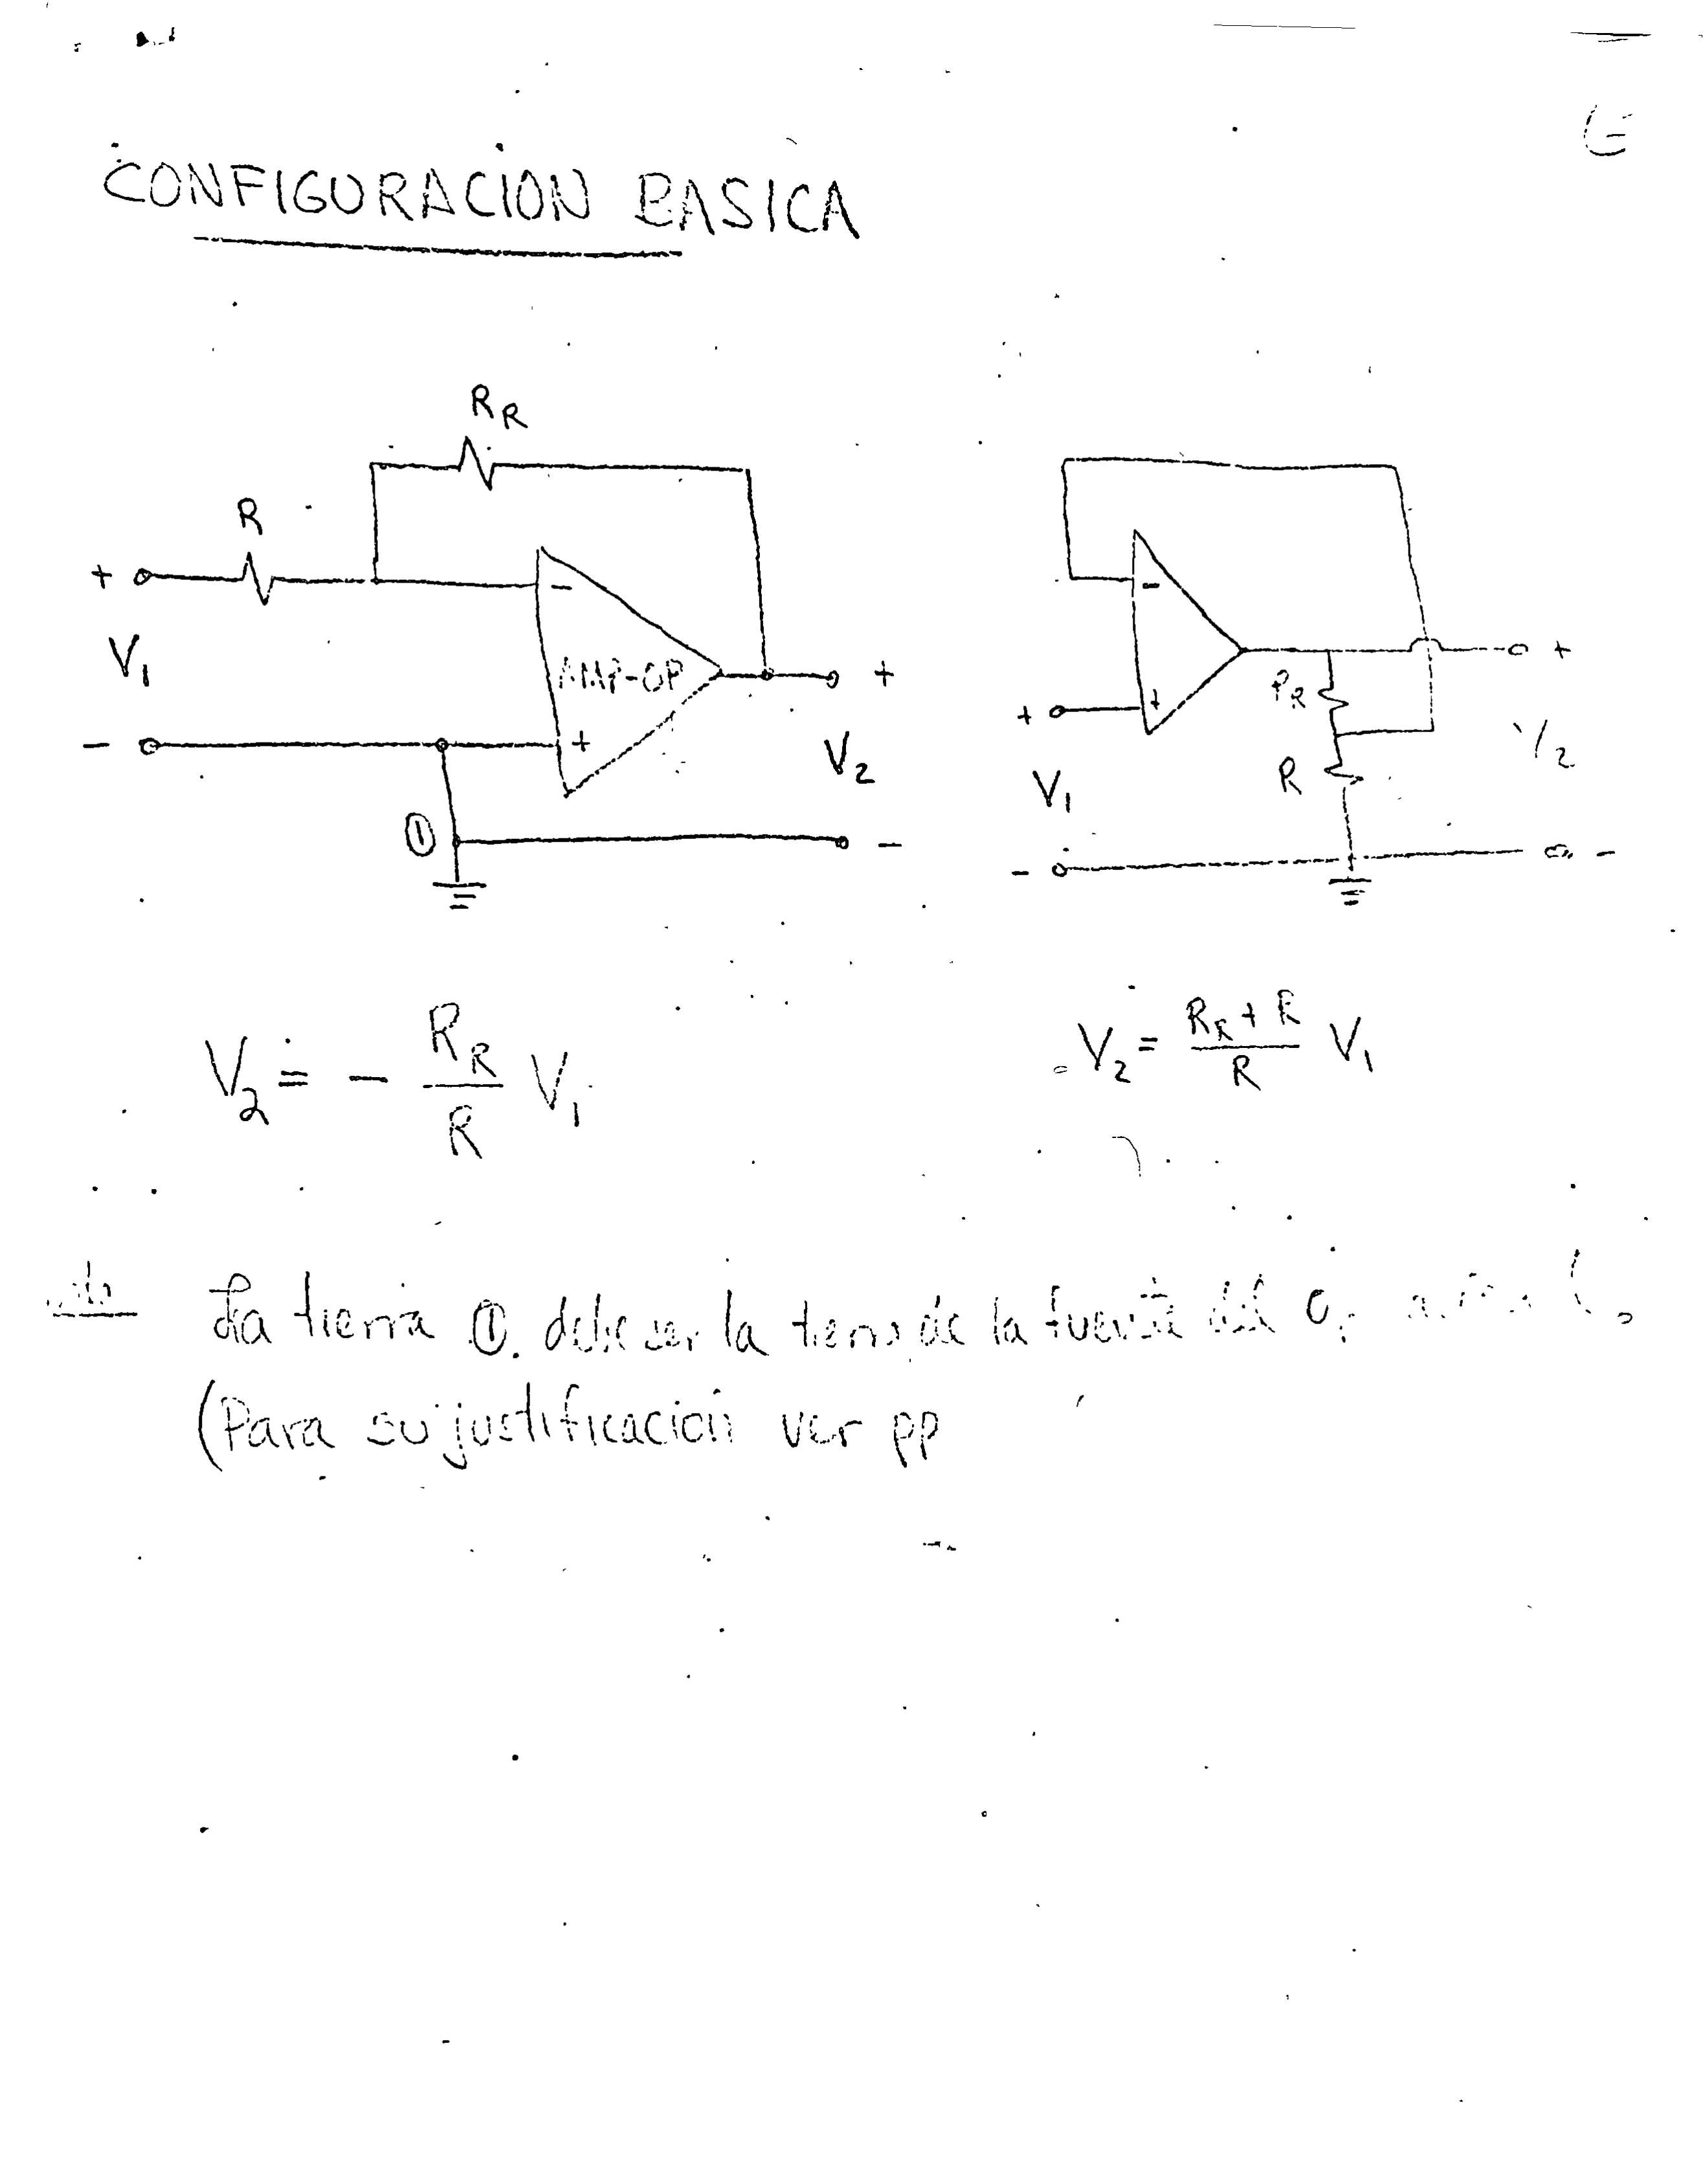 CONFIGURACION BASICA
R_R
R
+
V_1
-
-
+
AMP-OP
+
V_2
-
①
-
+
+
V_1
-
R_R
R
+
V_2
-
V_2 = - R_R / R V_1
V_2 = R_R + R / R V_1
La tierra ①. debe ser la tierra de la fuente del
(Para su justificación ver pp